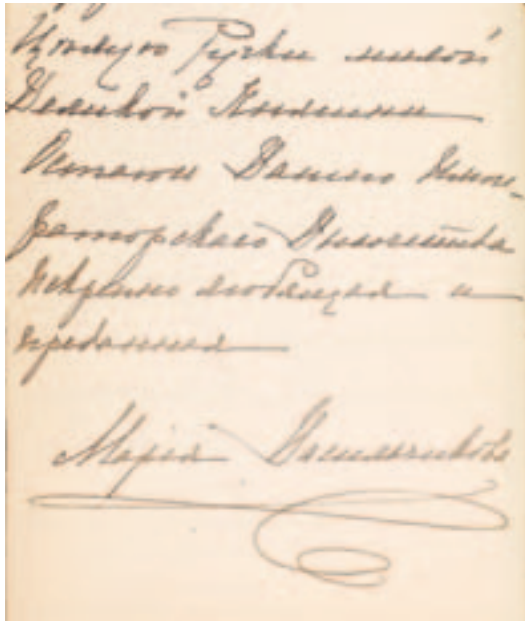 Цѣлую Ручки милой
Великой Княгини
Остаюсь Вашего Импе-
раторскаго Высочества
искренно любящая и
преданная
Марія Васильчикова